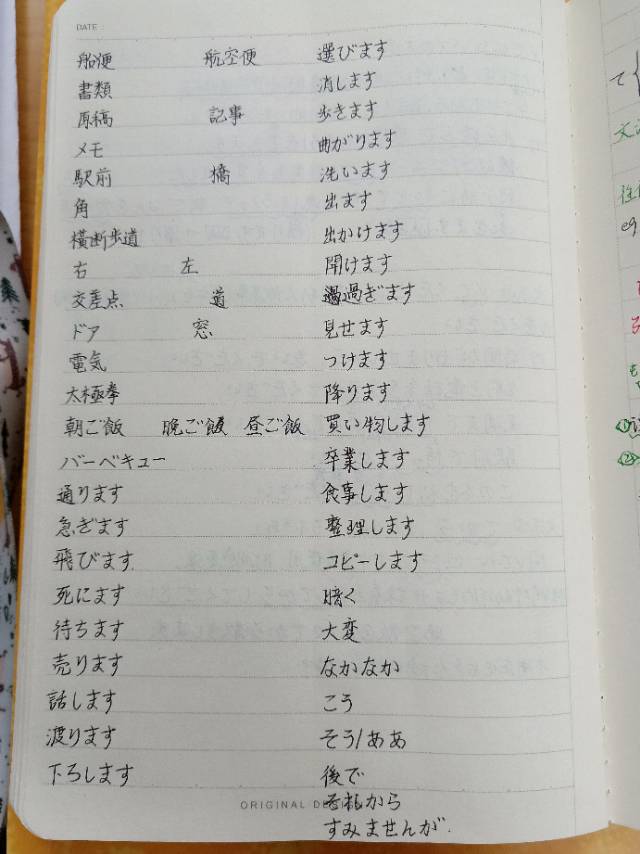 DATE
船便 航空便 選びます
書類 消します
原稿 記事 歩きます
メモ 曲がります
駅前 橋 洗います
角 出ます
横断歩道 出かけます
右 左 開けます
交差点 道 過ぎます
ドア 窓 見せます
電気 つけます
太極拳 降ります
朝ご飯 晩ご飯 昼ご飯 買い物します
バーベキュー 卒業します
通ります 食事します
急ぎます 整理します
飛びます コピーします
死にます 暗く
待ちます 大変
売ります なかなか
話します こう
渡ります そう/ああ
下ろします 後で
ORIGINAL
それから
すみませんが.